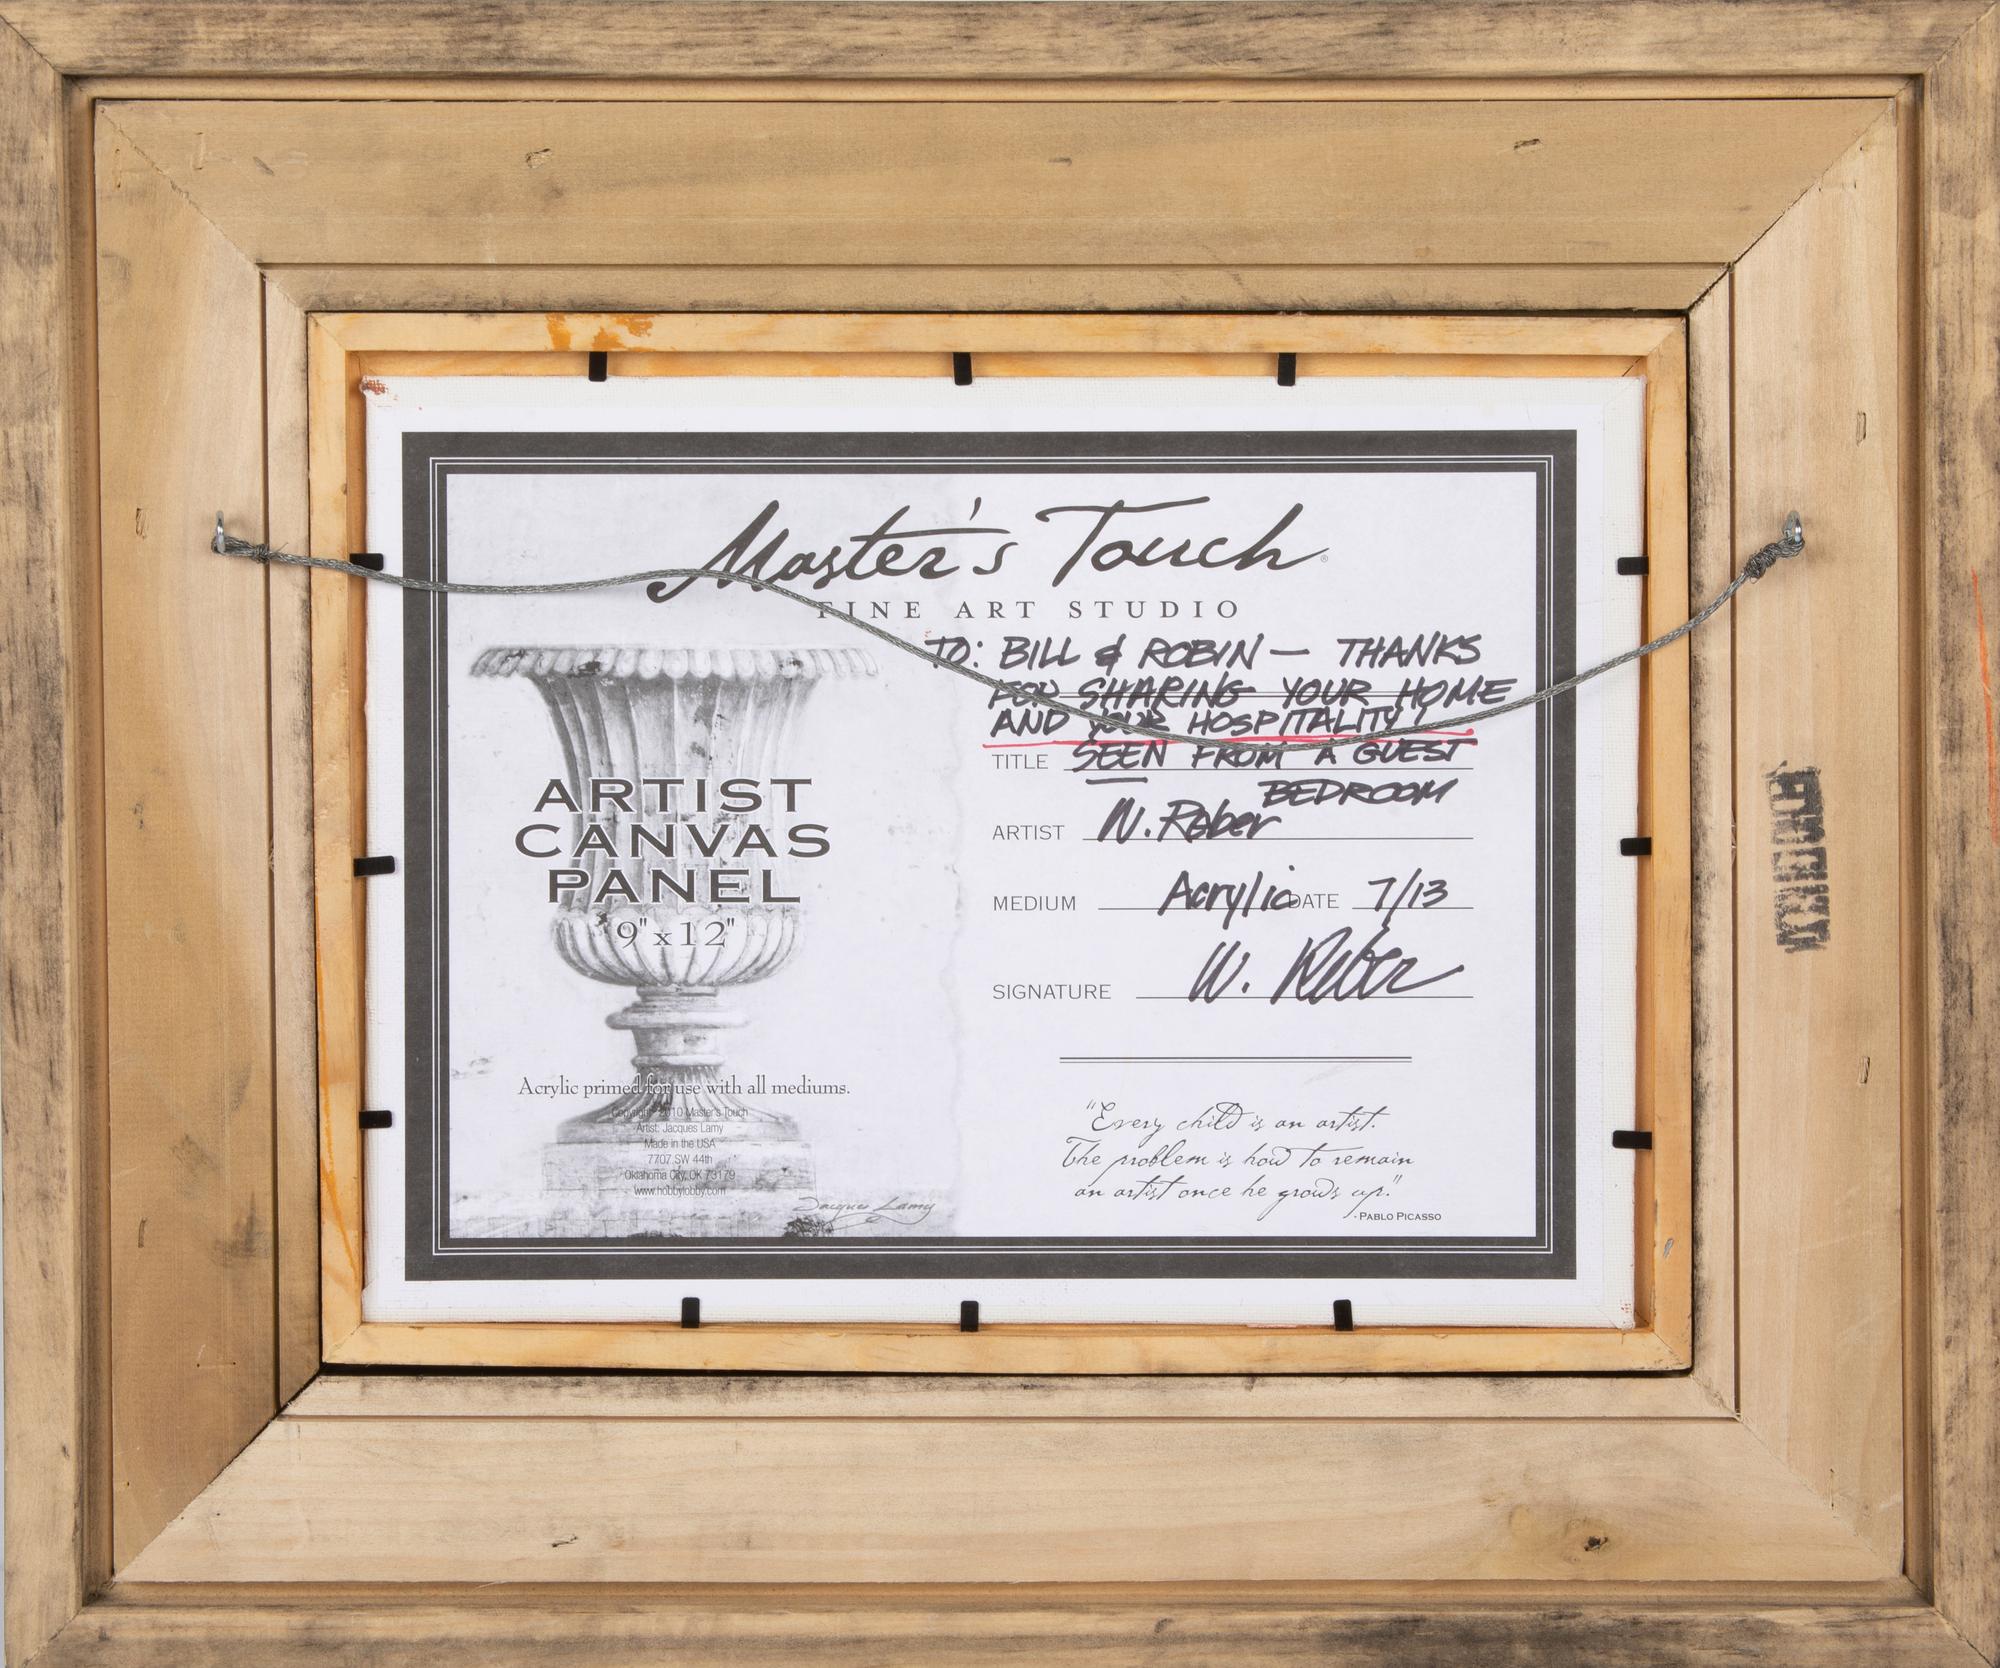 Master's Touch®
FINE ART STUDIO
TO: BILL & ROBIN — THANKS
FOR SHARING YOUR HOME
AND YOUR HOSPITALITY!
TITLE SEEN FROM A GUEST
BEDROOM
ARTIST W. Reber
MEDIUM Acrylic DATE 7/13
SIGNATURE W. Reber
ARTIST
CANVAS
PANEL
9" x 12"
Acrylic primed for use with all mediums.
Copyright 2010 Master's Touch
Artist: Jacques Lamy
Made in the USA
7707 SW 44th
Oklahoma City, OK 73179
www.hobbylobby.com
Jacques Lamy
"Every child is an artist.
The problem is how to remain
an artist once he grows up."
-PABLO PICASSO